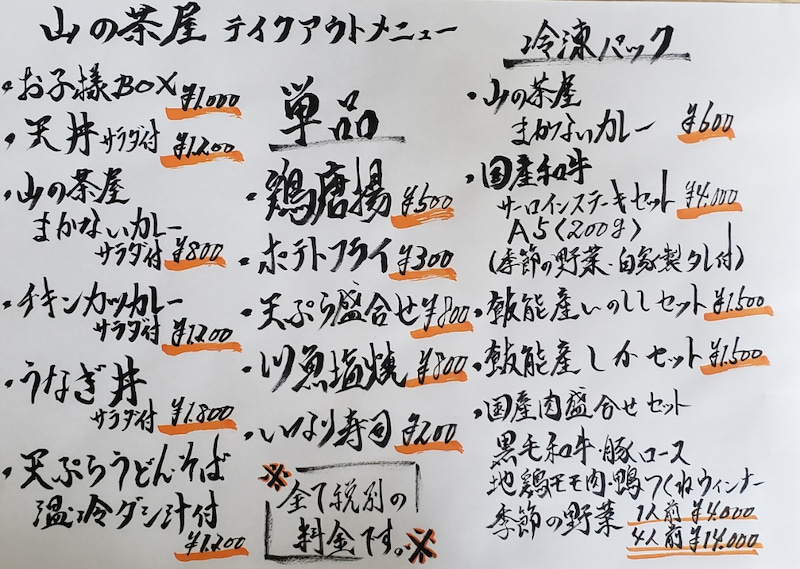 山の茶屋 テイクアウトメニュー
・お子様BOX ¥1.000
・天丼 サラダ付 ¥1200
・山の茶屋
まかないカレー
サラダ付 ¥800
・チキンカツカレー
サラダ付 ¥1200
・うなぎ丼
サラダ付 ¥1.800
・天ぷらうどん・そば
温・冷ダシ汁付
¥1.200
単品
・鶏唐揚 ¥500
・ポテトフライ ¥300
・天ぷら盛合せ ¥800
・川魚塩焼 ¥800
・いなり寿司 ¥200
※全て税別の
料金です。※
冷凍パック
・山の茶屋
まかないカレー ¥600
・国産和牛
サーロインステーキセット ¥4.000
A5(200g)
(季節の野菜・自家製タレ付)
・敷能産いのししセット ¥1.500
・敷能産しかセット ¥1.500
・国産肉盛合せセット
黒毛和牛・豚ロース
地鶏モモ肉・鴨つくねウィンナー
季節の野菜 1人前 ¥4.000
4人前 ¥14.000